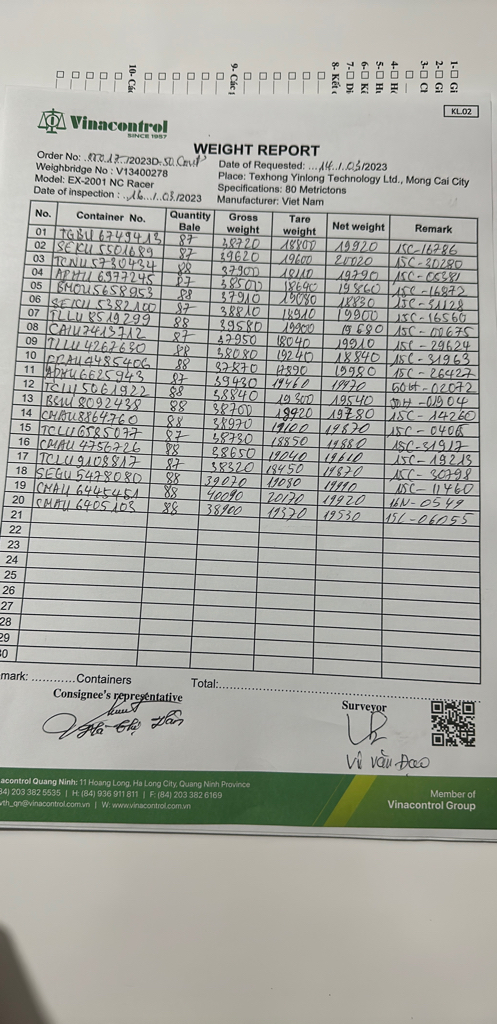 1- Gi
2- Gi
3- Ch
4- Hà
5- Hu
6- Kế
7- Di
8- Kết c
9- Các
10- Các
KL.02
Vinacontrol
SINCE 1957
WEIGHT REPORT
Order No: 17./2023D
Date of Requested: ...14../.03/2023
Weighbridge No : V13400278
Place: Texhong Yinlong Technology Ltd., Mong Cai City
Model: EX-2001 NC Racer
Specifications: 80 Metrictons
Date of inspection : .16.../.03/2023
Manufacturer: Viet Nam
No. Container No. Quantity Bale Gross weight Tare weight Net weight Remark
01 TGBU 6749413 87 38720 18800 19920 15C-16786
02 SEKU 5501689 87 39620 19600 20020 15C-30280
03 TCNU 5730434 88 37900 18110 19790 15C-05381
04 APHU 6977245 87 38500 18640 19860 15C-16872
05 BMOU 5658953 88 37910 19080 18830 15C-31128
06 SEKU 5382100 87 38810 18910 19900 15C-16560
07 TLLU 8519299 88 39580 19900 19680 15C-00675
08 CAIU 7413712 87 37950 18040 19910 15C-29624
09 TLLU 4262630 88 38080 19240 18840 15C-31963
10 4485406 88 37870 17890 19980 15C-26427
11 APHU 6625943 87 39430 19460 19970 60H-02072
12 TCLU 5061922 88 38840 19300 19540 01904
13 BSIU 8092438 88 38700 18920 19780 15C-14260
14 CMAU 8864760 88 38970 19100 19870 15C-0406
15 TCLU 6585077 87 38730 18850 19880 15C-31917
16 CMAU 4756726 88 38650 19040 19610 15C-19213
17 TCLU 9108817 87 38320 18450 19870 15C-30798
18 SEGU 5478080 88 39070 19080 19990 15C-11460
19 CMAU 6445451 88 40090 20170 19920 16N-0549
20 CMAU 6405103 88 38900 19370 19530 15C-06055
21
22
23
24
25
26
27
28
29
30
mark: ............Containers Total:
Consignee's representative
Surveyor
Vi Văn Đao
acontrol Quang Ninh: 11 Hoang Long, Ha Long City, Quang Ninh Province
84) 203 382 5535 | H: (84) 936 911 811 | F: (84) 203 382 6169
vth_qn@vinacontrol.com.vn | W: www.vinacontrol.com.vn
Member of
Vinacontrol Group